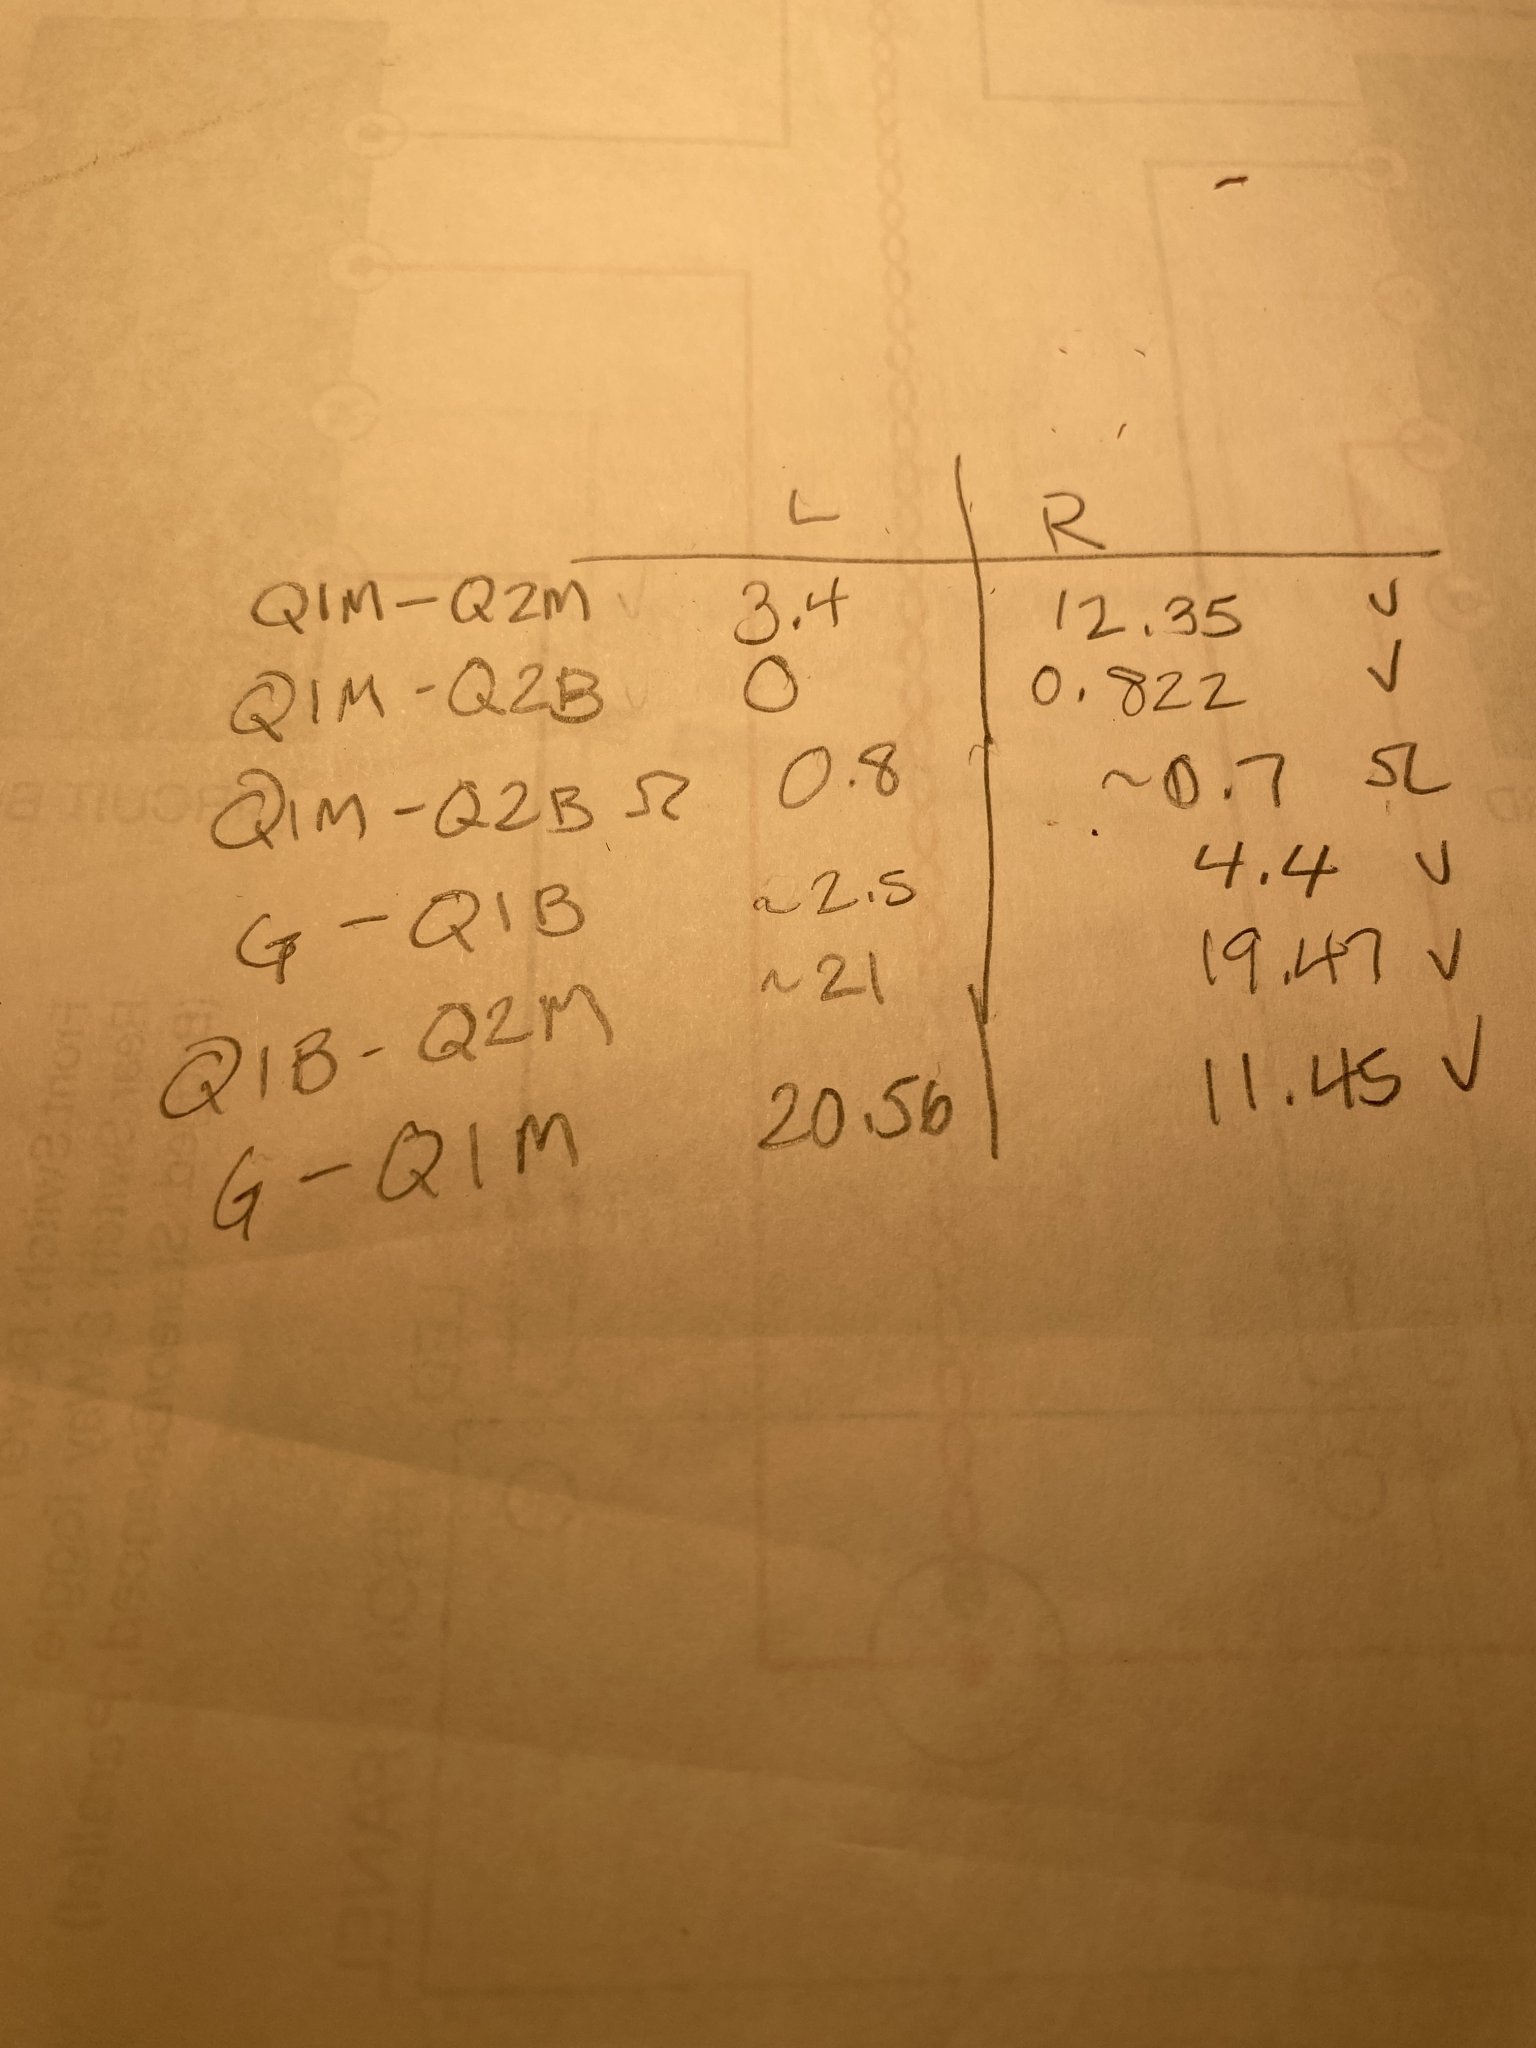 L R
Q1M-Q2M 3.4 12.35 V
Q1M-Q2B 0 0.822 V
Q1M-Q2B Ω 0.8 ~0.7 Ω
G-Q1B ~2.5 4.4 V
Q1B-Q2M ~21 19.47 V
G-Q1M 20.56 11.45 V